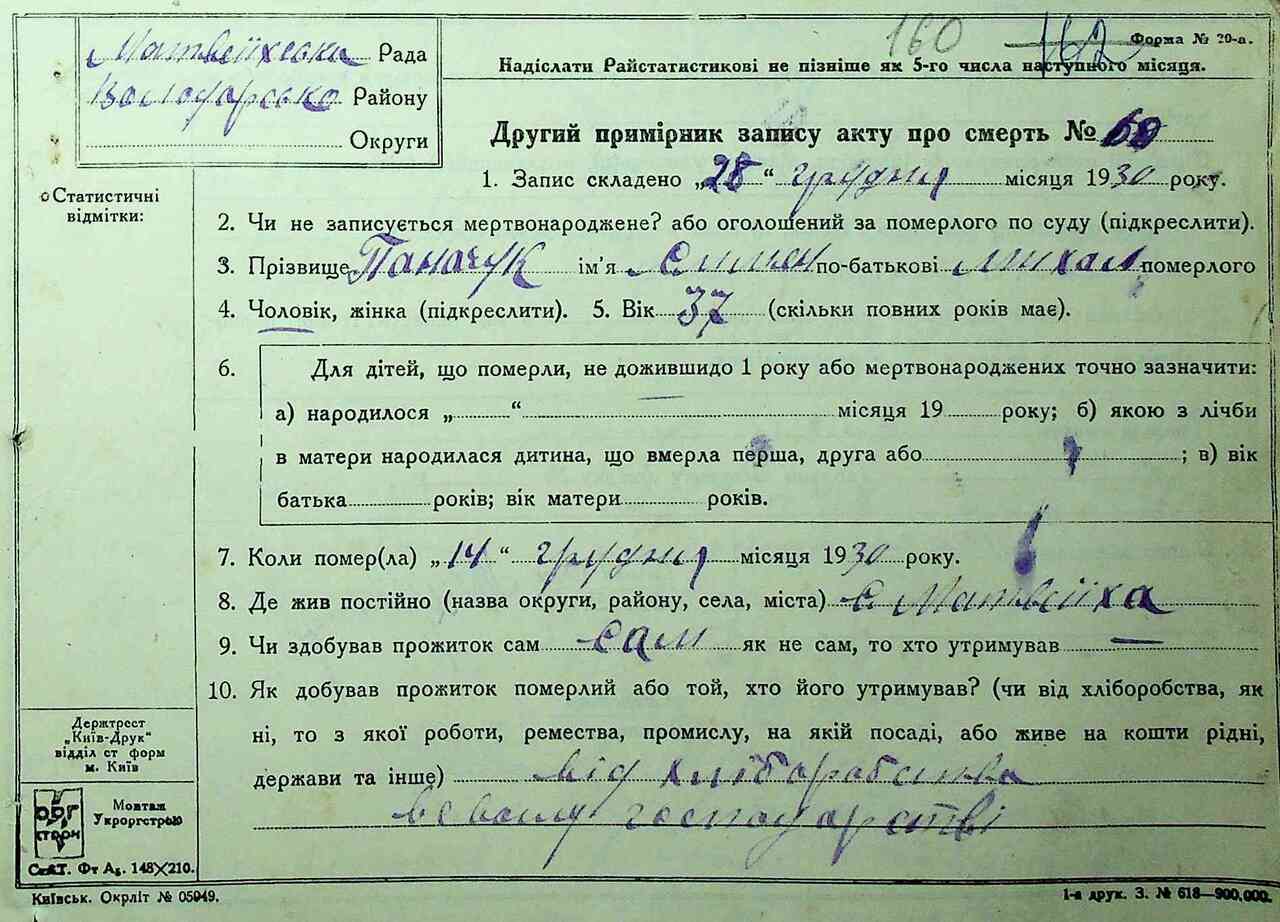 160 162 Форма № 20-а.
Матвеїхська Рада
Надіслати Райстатистикові не пізніше як 5-го числа наступного місяця.
Володарсько Району
Округи
Другий примірник запису акту про смерть № 60
1. Запис складено „28“ грудня місяця 1930 року.
Статистичні
відмітки:
2. Чи не записується мертвонароджене? або оголошений за померлого по суду (підкреслити).
3. Прізвище Паначук ім’я Симон по-батькові Михал померлого
4. Чоловік, жінка (підкреслити). 5. Вік 37 (скільки повних років має).
6. Для дітей, що померли, не дожившидо 1 року або мертвонароджених точно зазначити:
а) народилося „ “ місяця 19 року; б) якою з лічби
в матери народилася дитина, що вмерла перша, друга або ; в) вік
батька років; вік матери років.
7. Коли помер(ла) „14“ грудня місяця 1930 року.
8. Де жив постійно (назва округи, району, села, міста) с Матвеїха
9. Чи здобував прожиток сам сам як не сам, то хто утримував —
10. Як добував прожиток померлий або той, хто його утримував? (чи від хліборобства, як
ні, то з якої роботи, ремества, промислу, на якій посаді, або живе на кошти рідні,
держави та інше) від хліборобства
в свому господарстві
Держтрест
„Київ-Друк“
відділ ст форм
м. Київ
орг
строй
Монтаж
Укроргстрою
СтАТ. Фт А₅. 148×210.
Київськ. Окрліт № 05949.
1-а друк. З. № 618—900.000.